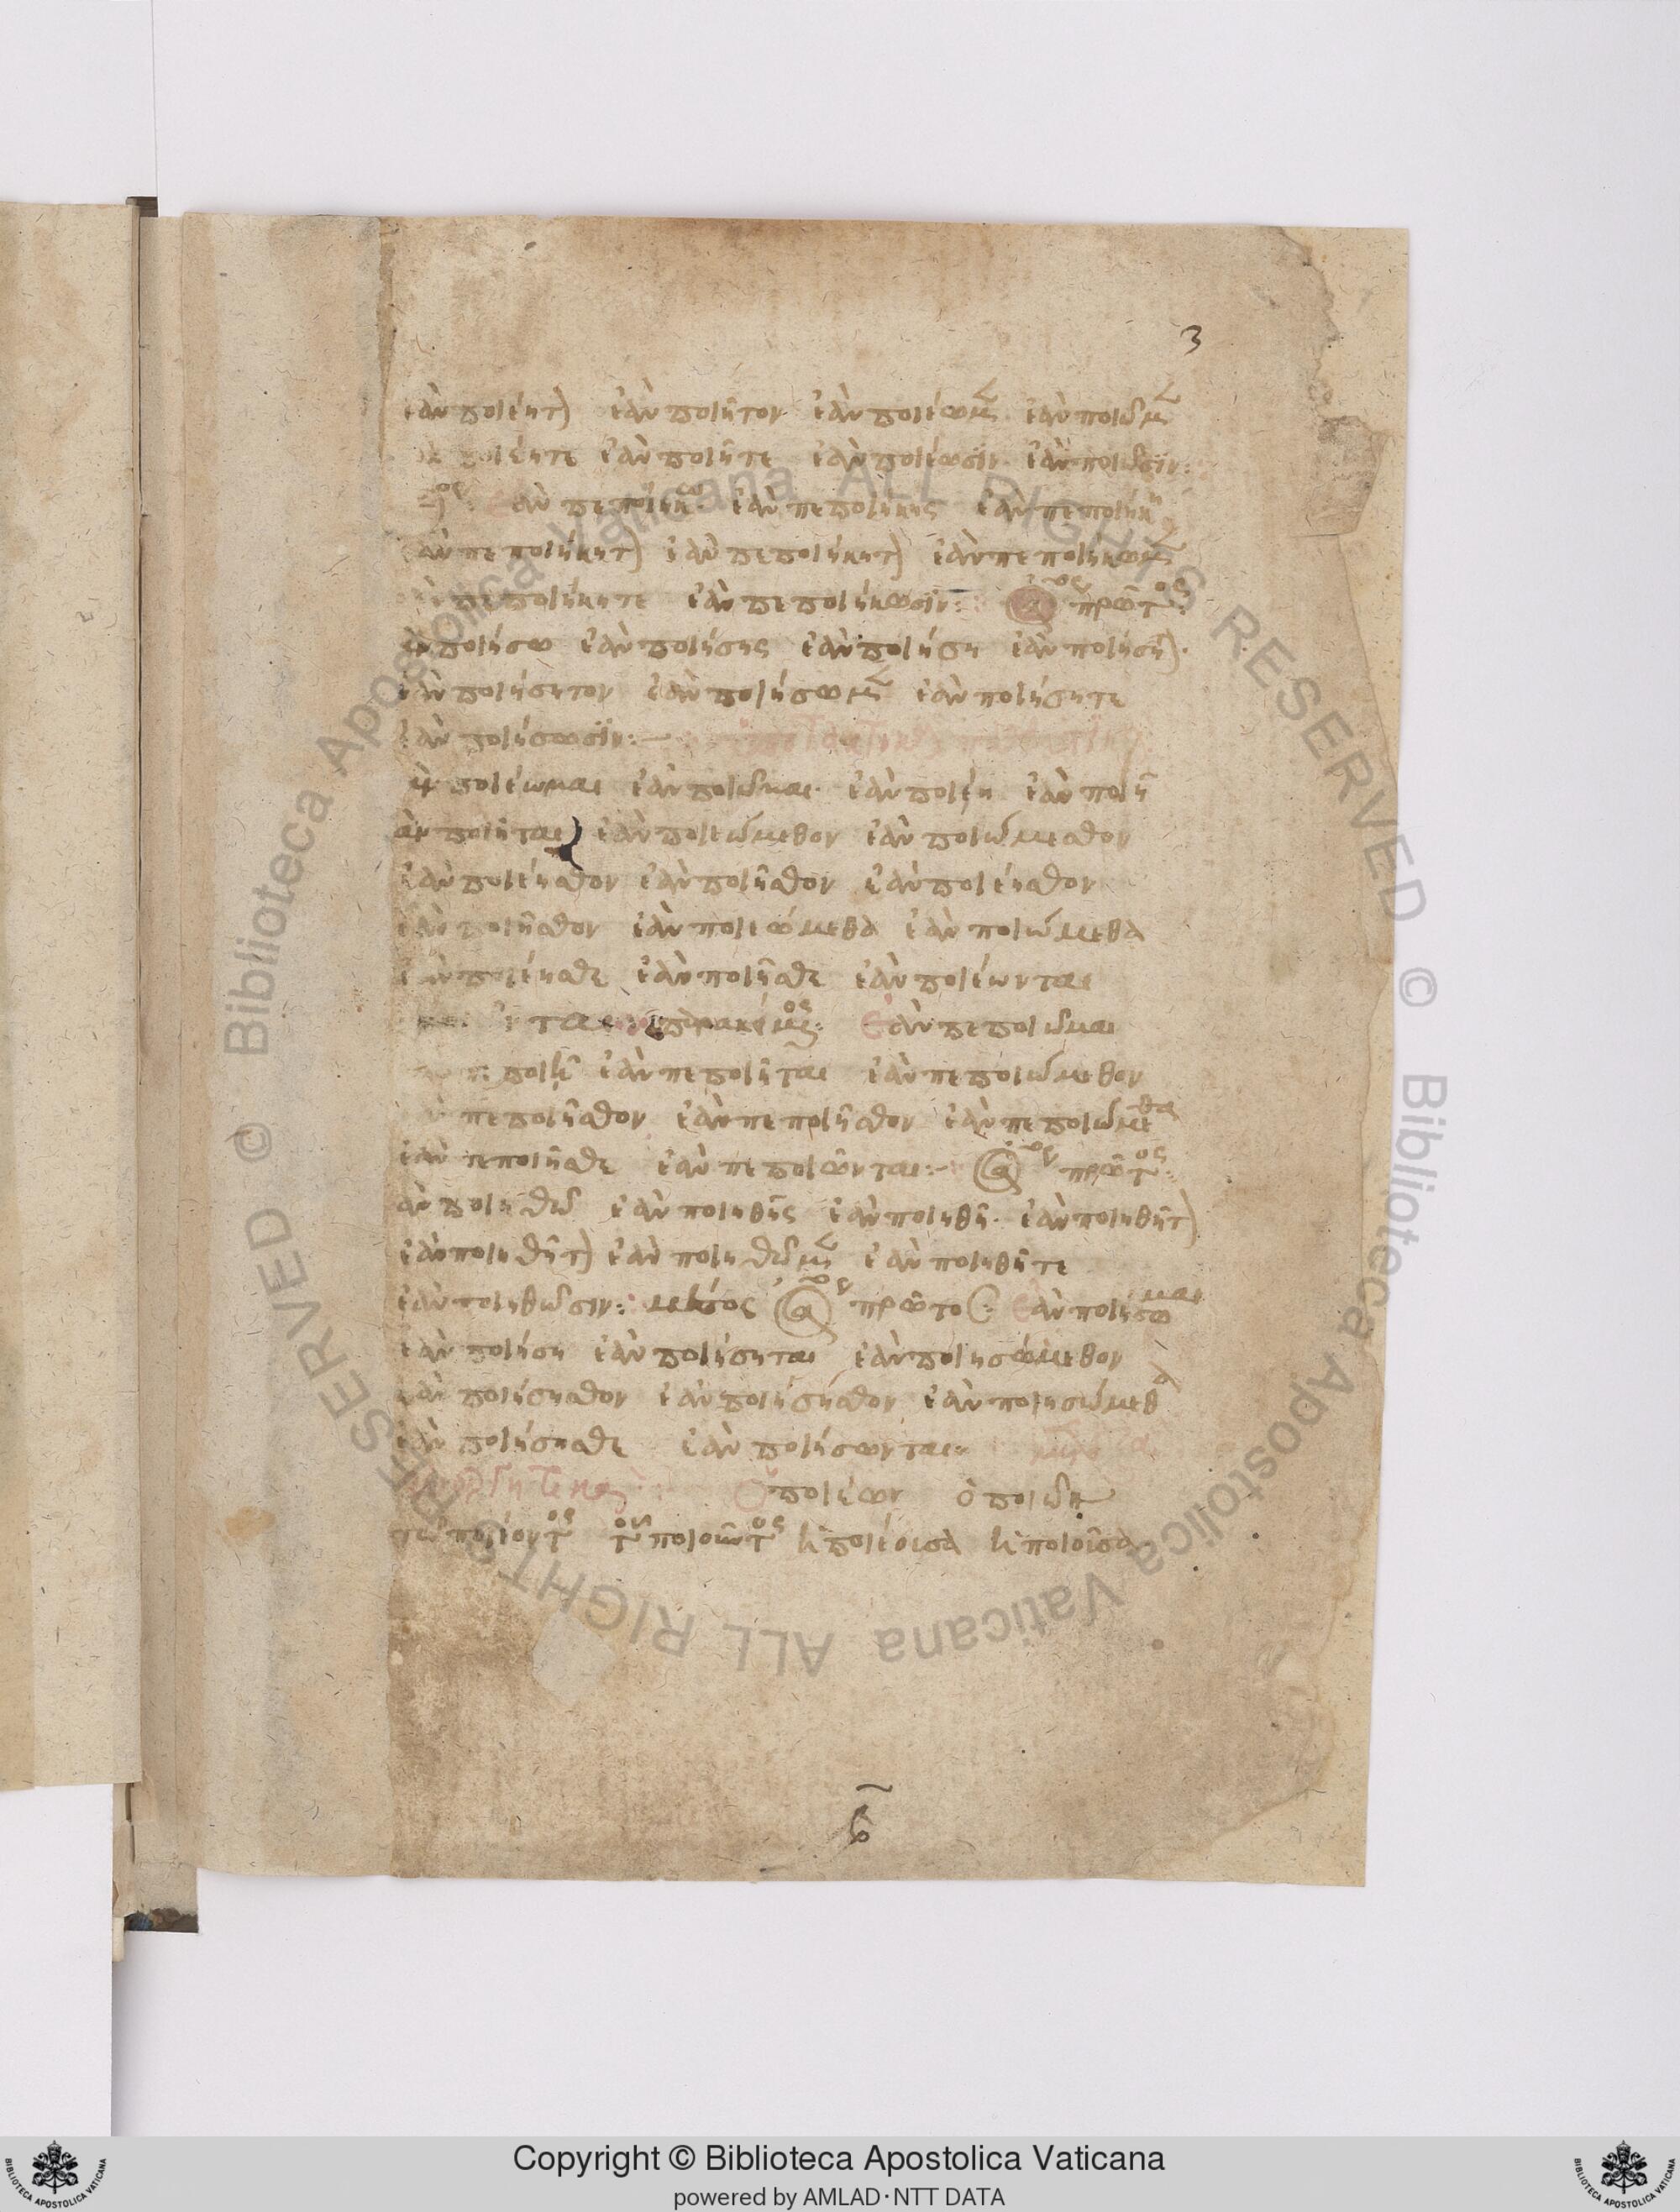 3
ἐὰν ποιέητ) ἐὰν ποιῆτον ἐὰν ποιέωμ ἐὰν ποιῶμ
ποιέητε ἐὰν ποιῆτε ἐὰν ποιέωσϊν ἐὰν ποιῶσϊν:
ἐὰν πεποιήκω ἐὰν πεποιήκης ἐὰν πεποιήκ
ἐὰν πεποιήκητ) ἐὰν πεποιήκητ) ἐὰν πεποιήκωμ
πεποιήκητε ἐὰν πεποιήκωσϊν: ἀος πρῶτος:
ἐὰν ποιήσω ἐὰν ποιήσης ἐὰν ποιήση ἐὰν ποιήση).
ἐὰν ποιήσητον ἐὰν ποιήσωμ ἐὰν ποιήσητε
ἐὰν ποιήσωσϊν:
ποιέωμαι ἐὰν ποιῶμαι ἐὰν ποιέη ἐὰν ποιῆ
ἐὰν ποιῆται ἐὰν ποιεώμεθον ἐὰν ποιώμεθον
ἐὰν ποιέησθον ἐὰν ποιῆσθον ἐὰν ποιέησθον
ἐὰν ποιῆσθον ἐὰν ποιεώμεθα ἐὰν ποιώμεθα
ἐὰν ποιέησθε ἐὰν ποιῆσθε ἐὰν ποιέωνται
παρακείμος: ἐὰν πεποιῶμαι
ποιῆ ἐὰν πεποιῆται ἐὰν πεποιώμεθον
πεποιῆσθον ἐὰν πεποιῆσθον ἐὰν πεποιώμεθα
ἐὰν πεποιῆσθε ἐὰν πεποιῶνται: ἀος πρῶτος:
ἐὰν ποιηθῶ ἐὰν ποιηθῆς ἐὰν ποιηθῆ. ἐὰν ποιηθῆτ)
ἐὰν ποιηθῆτ) ἐὰν ποιηθῶμ ἐὰν ποιηθῆτε
ἐὰν ποιηθῶσιν: μέσος ἀος πρῶτος: ἐὰν ποιήσωμαι
ἐὰν ποιήση ἐὰν ποιήσηται ἐὰν ποιησώμεθον
ἐὰν ποιήσησθον ἐὰν ποιήσησθον ἐὰν ποιησώμεθα
ἐὰν ποιήσησθε ἐὰν ποιήσωνται:
ὁ ποιέων ὁ ποιῶν
τοῦ ποιέοντος τοῦ ποιοῦντος ἡ ποιέουσα ἡ ποιοῦσα
Copyright © Biblioteca Apostolica Vaticana
powered by AMLAD·NTT DATA